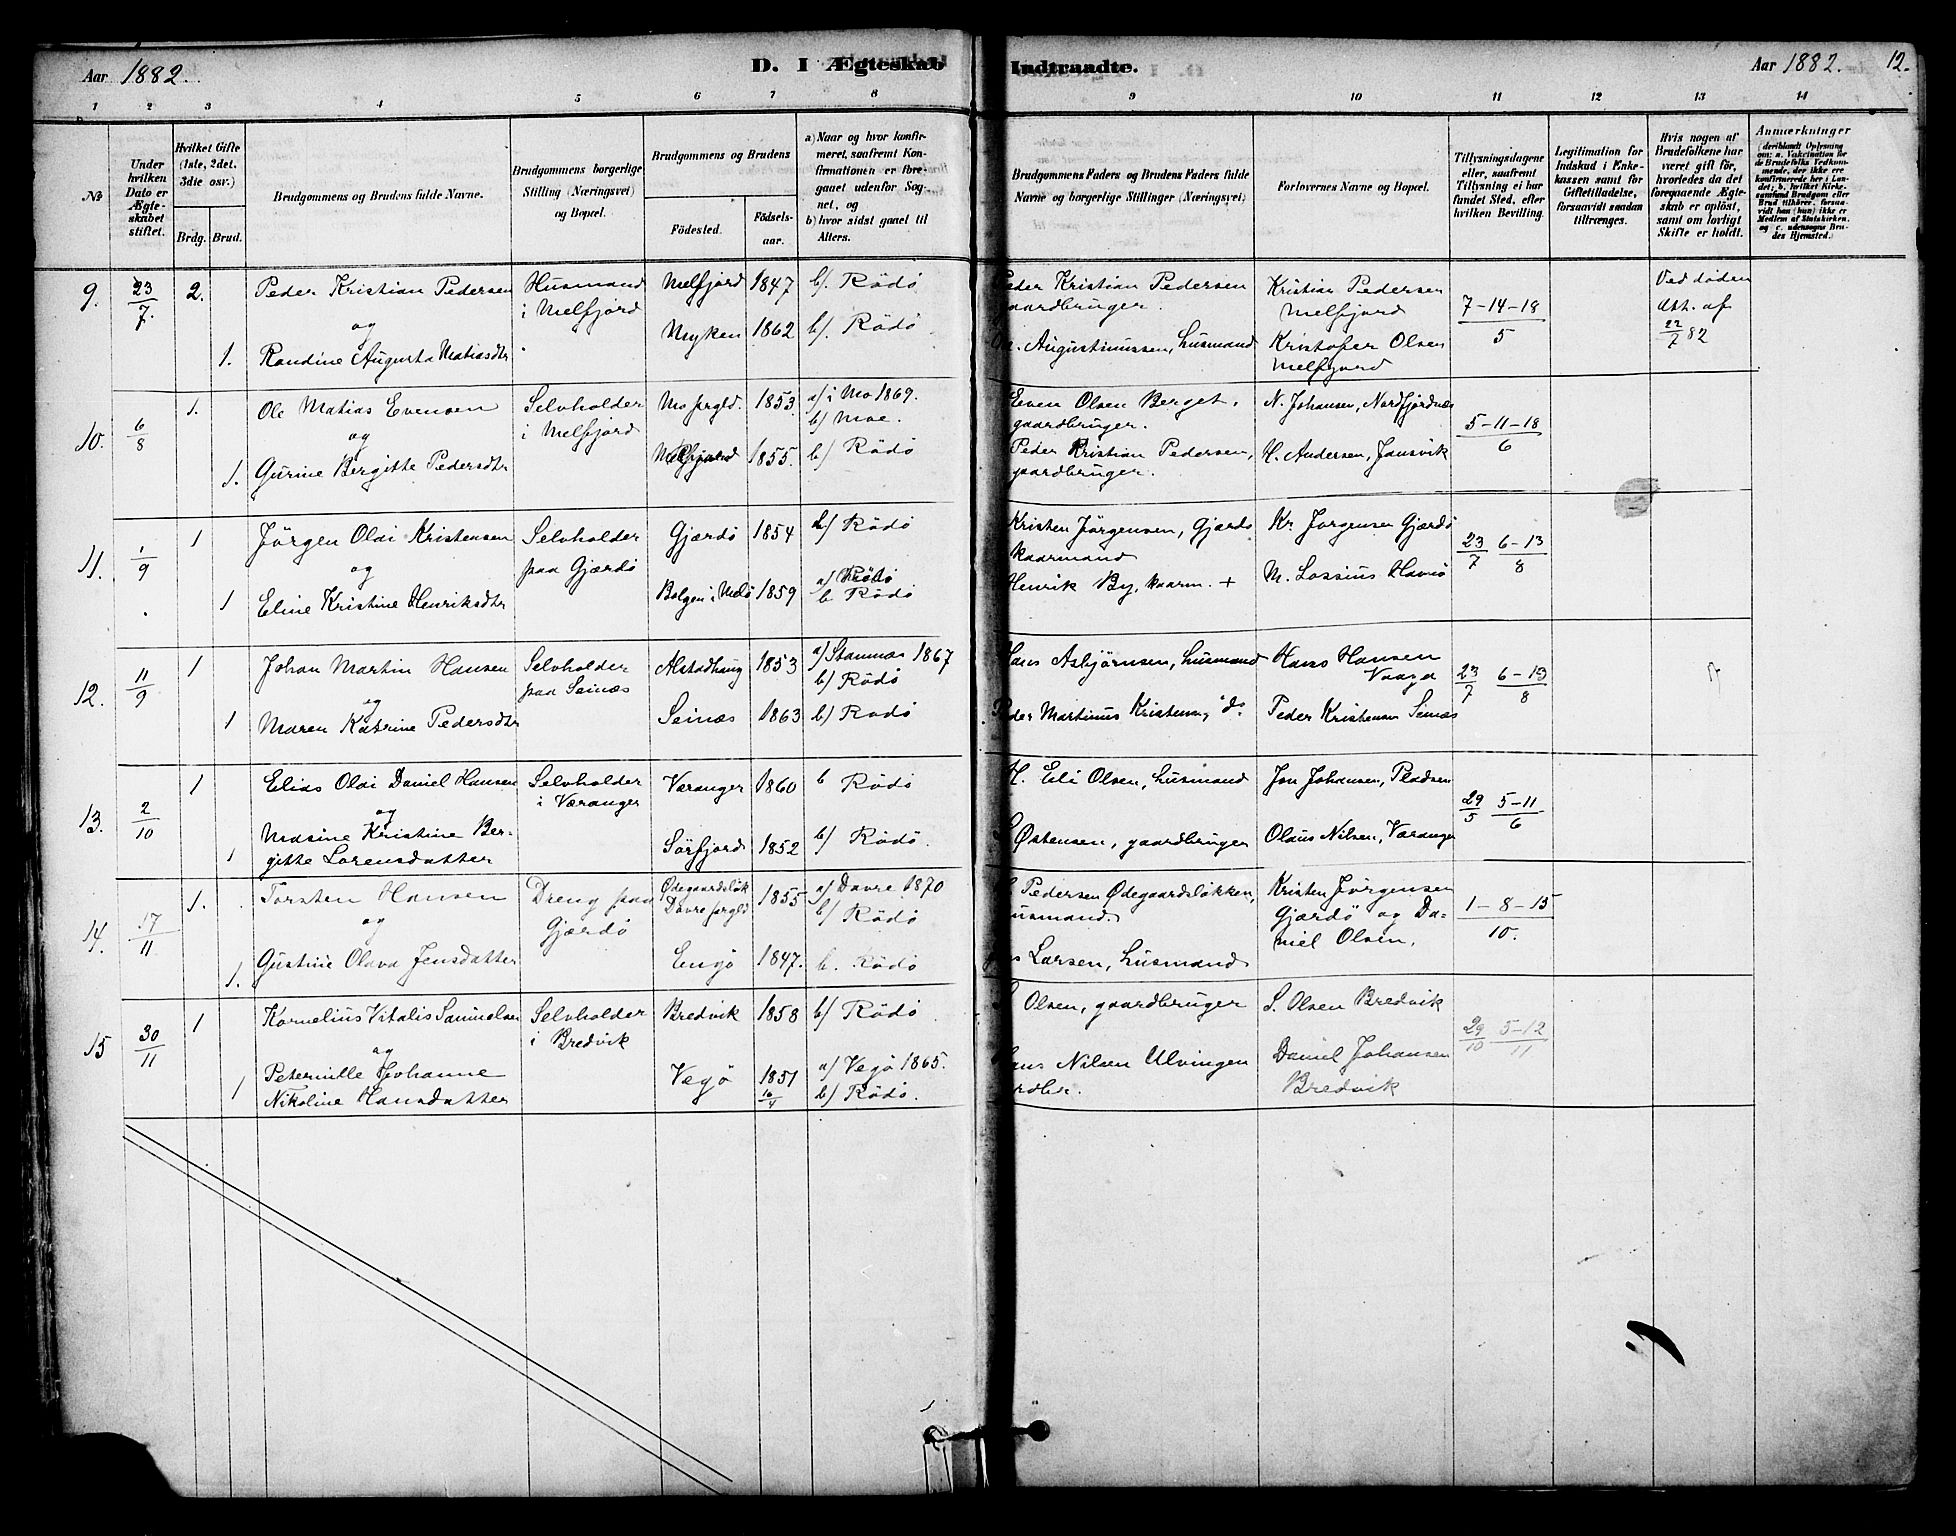 Aar 1882. D. I Ægteskab Indtraadte. Aar 1882. 12.
1 2 3 4 5 6 7 8 9 10 11 12 13 14
No
Under hvilken Dato er Ægteskabet stiftet.
Hvilket Gifte (1ste, 2det. 3die osv.)
Brdg. Brud.
Brudgommens og Brudens fulde Navne.
Brudgommens borgerlige Stilling (Næringsvei) og Bopæl.
Brudgommens og Brudens
Fødested. Fødselsaar.
a) Naar og hvor konfirmeret, saafremt Konfirmationen er foregaaet udenfor Sognet, og
b) hvor sidst gaaet til Alters.
Brudgommens Faders og Brudens Faders fulde Navne og borgerlige Stillinger (Næringsvei)
Forlovernes Navne og Bopæl.
Tillysningsdagene eller, saafremt Tillysning ei har fundet Sted, efter hvilken Bevilling.
Legitimation for Indskud i Enkekassen samt for Giftetilladelse, forsaavidt saadan tiltrænges.
Hvis nogen af Brudefolkene har været gift før, hvorledes da det foregaaende Ægteskab er opløst, samt om lovligt Skifte er holdt.
Anmærkninger (deriblandt Oplysning om: a. Vakcination for de Brudefolks Vedkommende, der ikke ere konfirmerede her i Landet; b. hvilket Kirkesamfund Brudgom eller Brud tilhører, forsaavidt han (hun) ikke er Medlem af Statskirken, og c. udensogns Brudes Hjemsted.)
9. 23/7. 2. Peder Kristian Pedersen Husmand i Melfjord Melfjord 1847 b). Rödö
og
1. Randine Augusta Matiasdtr Myken 1862 b). Rödö.
Peder Kristian Pedersen gaardbruger. Kristian Pedersen Melfjord 7-14-18/5 Ved döden Att. af 22/7 82
M. Augustinussen, husmand Kristofer Olsen Melfjord
10. 6/8 1. Ole Matias Evensen Selvholder i Melfjord Mo prgld. 1853. a) i Mo 1869. b) Moe.
og
1. Gurine Bergitte Pedersdtr Melfjord 1855. b) Rödö
Even Olsen Berget, gaardbruger. N. Johansen, Nordfjordnæs 5-11-18/6
Peder Kristian Pedersen, gaardbruger. H. Andersen, Jansvik
11. 1/9 1 Jörgen Olai Kristensen Selvholder paa Gjærdö Gjærdö 1854 b) Rödö
og
1 Eline Kristine Henriksdtr Bolgen i Melö 1859 a) Rödö b Rödö
Kristen Jörgensen, Gjærdö kaarmand Kr. Jorgensen Gjærdö 23/7 6-13/8
Henrik By, kaarm. + M. Lossius Havnö
12. 11/9 1 Johan Martin Hansen Selvholder paa Seinæs Alstadhaug 1853 a) Stamnæs 1867 b) Rödö
og
1 Maren Katrine Pedersdtr Seinæs 1863 b) Rödö
Hans Asbjörnsen, husmand Hans Hansen Vaaga 23/7 6-13/8
Peder Martinus Kristensen, do. Peder Kristensen Seinæs
13. 2/10 1 Elias Olai Daniel Hansen Selvholder i Væranger Væranger 1860 b Rödö
og
1 Masine Kristine Bergitte Lorensdatter Sörfjord 1852 b) Rödö.
H. Eli Olsen, husmand Jon Johansen, Pladsen 29/5 5-11/6
Östensen, gaardbruger Olaus Nilsen, Væranger
14. 17/11 1. Torsten Hansen Dreng paa Gjærdö Ödegaardsløk Dovre prgld 1855 a) Dovre 1870 b) Rödö
og
1. Gustine Olava Jensdatter Engö 1847. b. Rödö
Pedersen Ödegaardsløkken, husmand. Kristen Jörgensen Gjærdö og Daniel Olsen. 1-8-15/10.
Larsen, husmand
15 30/11 1 Kornelius Vitalis Samuelsen Selvholder i Bredvik Bredvik 1858 b) Rödö
og
1 Peternille Johanne Nikoline Hansdatter Vegö 1851 16/4 a) Vegö 1865. b) Rödö.
Olsen, gaardbruger S. Olsen Bredvik 29/10 5-12/11
Hans Nilsen Ulvingen Daniel Johansen Bredvik